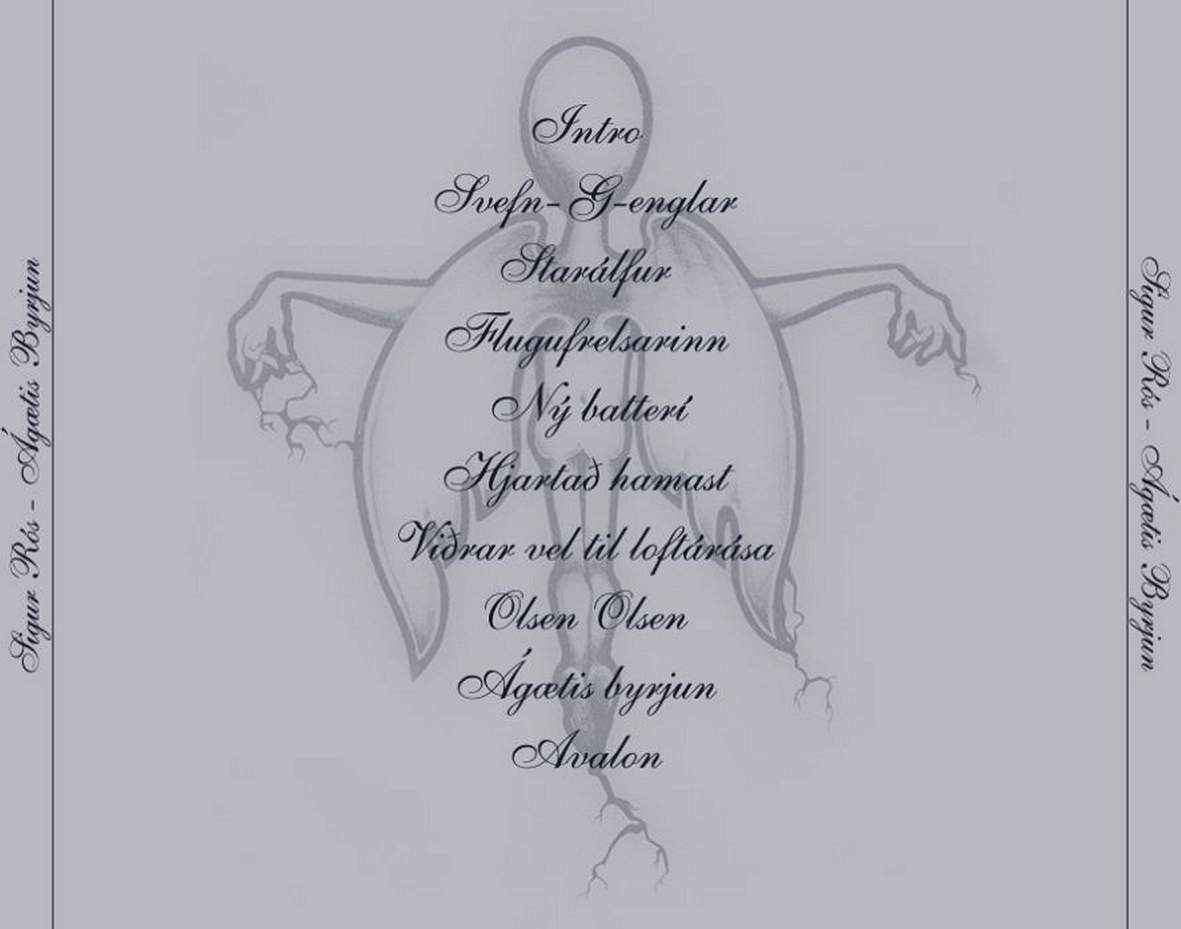 Sigur Rós - Ágætis Byrjun
Intro
Svefn-G-englar
Starálfur
Flugufrelsarinn
Ný batterí
Hjartað hamast
Viðrar vel til loftárása
Olsen Olsen
Ágætis byrjun
Avalon
Sigur Rós - Ágætis Byrjun